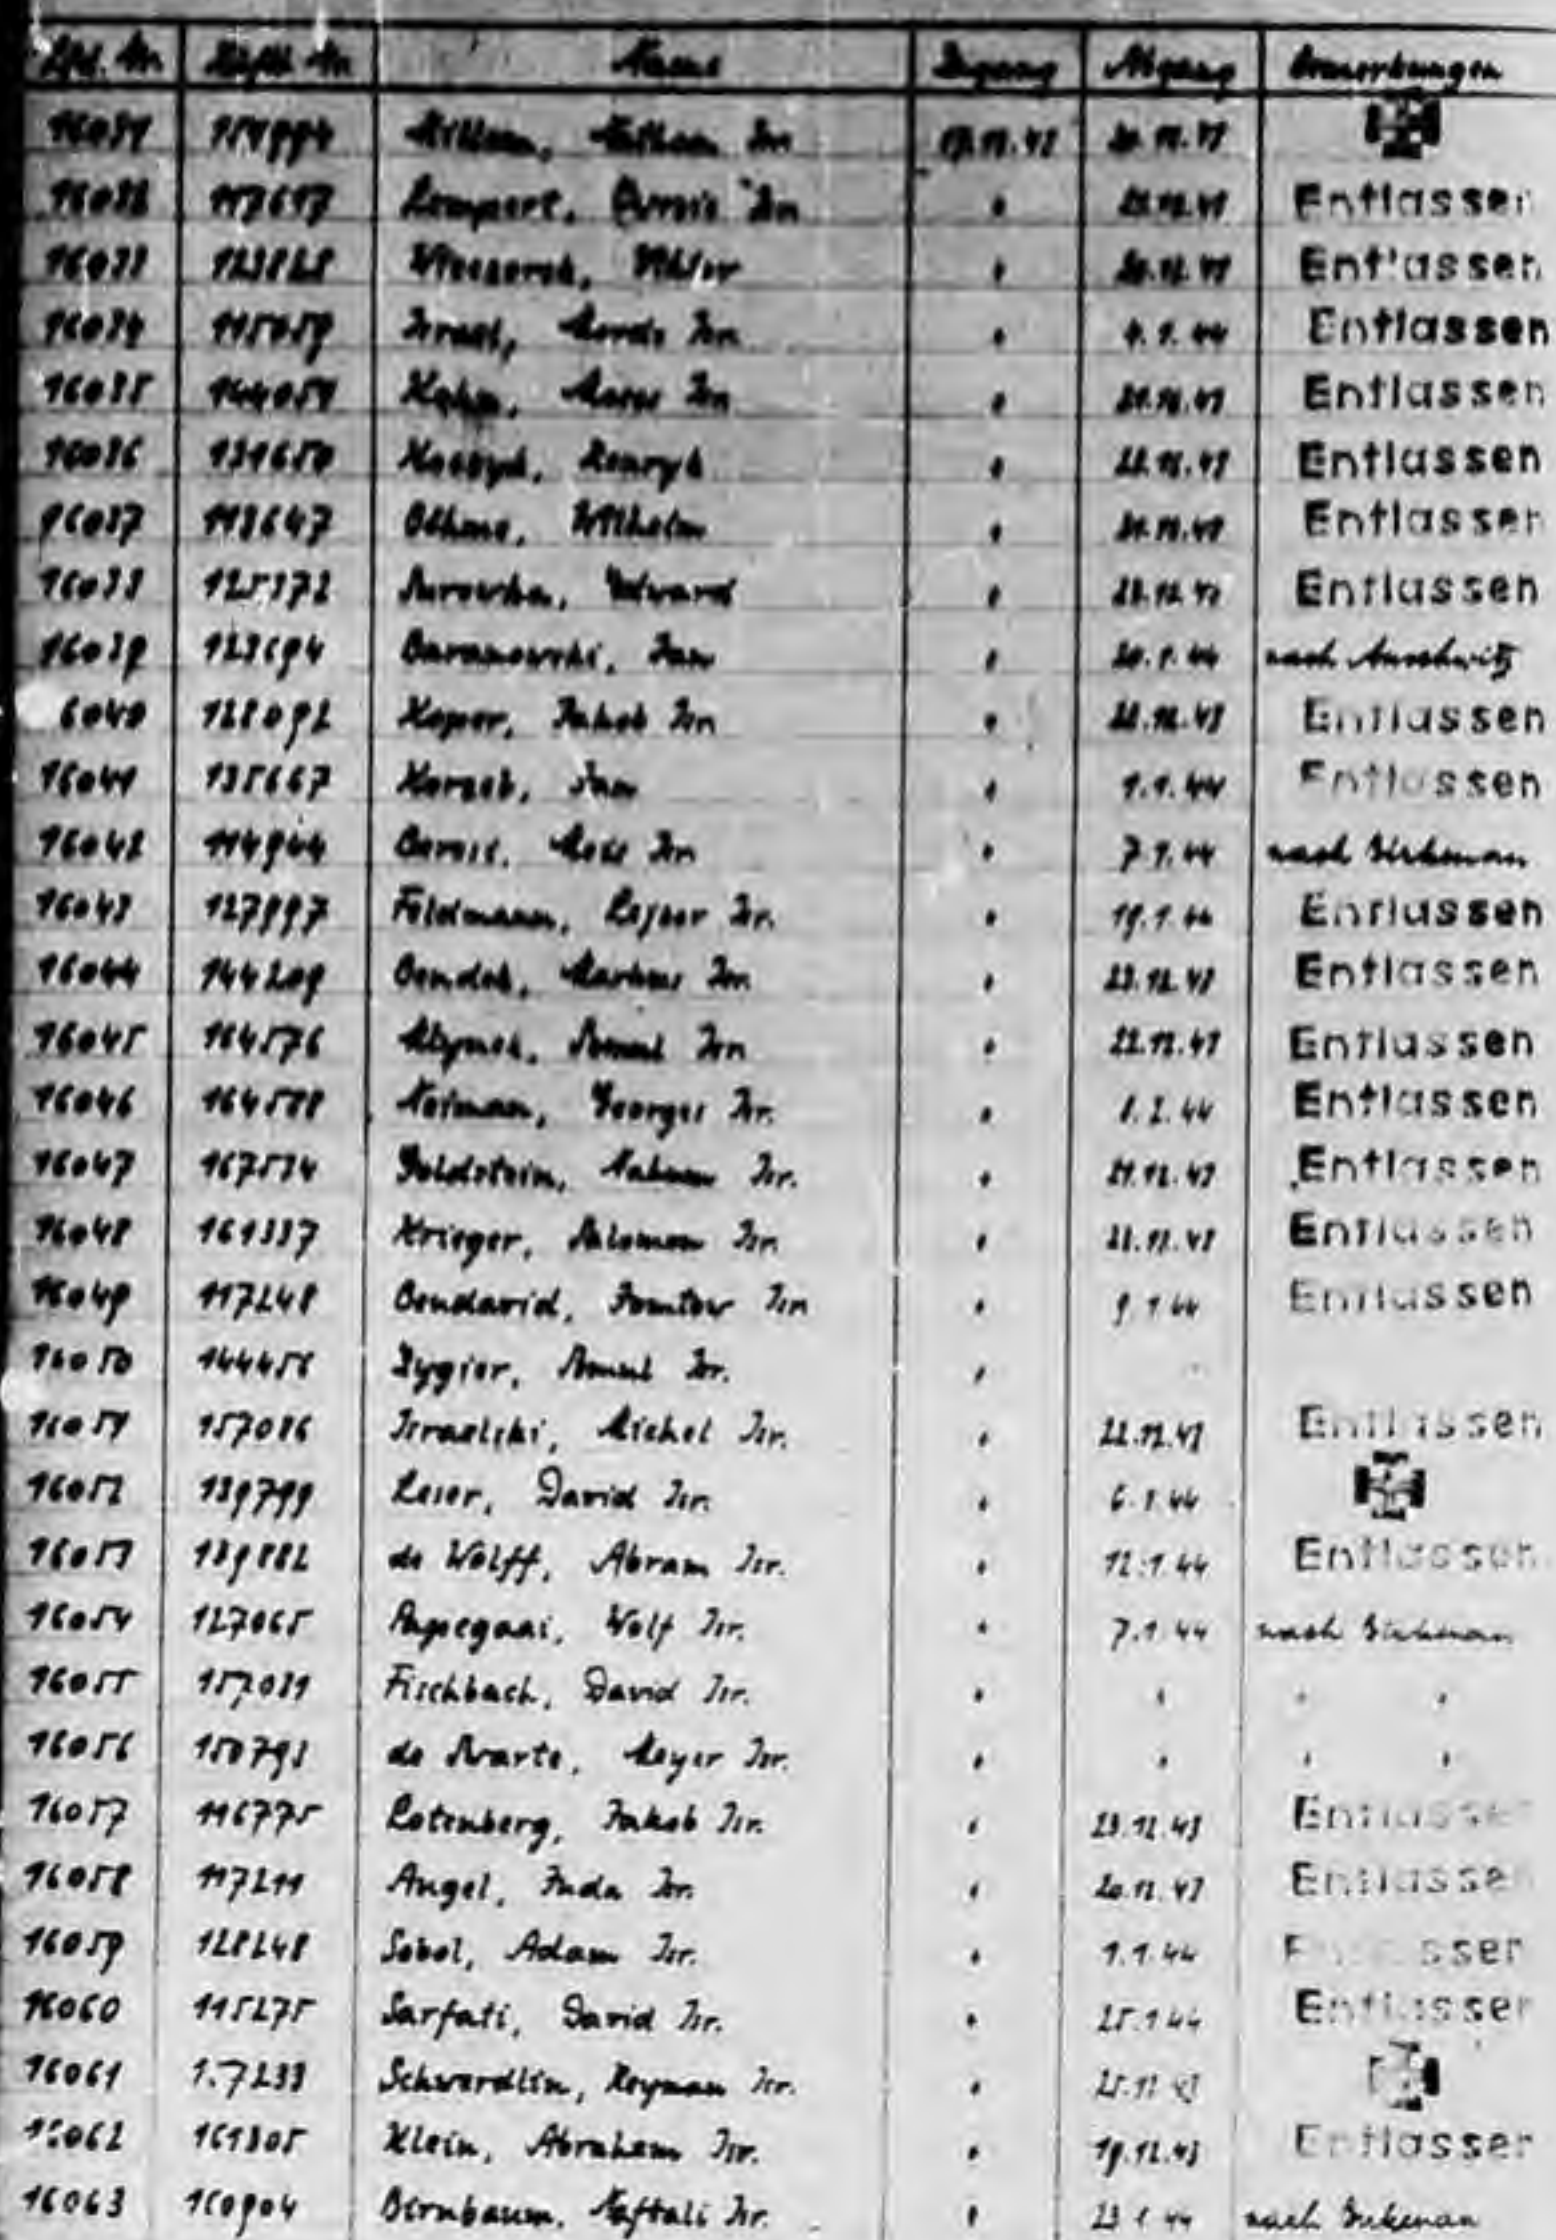 Lfd. Nr. Häftl. Nr. Name Zugang Abgang Bemerkungen
16031 Nathan Isr. 17.12.43 20.12.43
16032 117617 Lempert, Isr. " 22.12.43 Entlassen
16033 123828 " 20.12.43 Entlassen
16034 115059 Israel, Isr. " 4.1.44 Entlassen
16035 164051 Isr. " 21.12.43 Entlassen
16036 131650 Henryk " 22.12.43 Entlassen
16037 113647 Wilhelm " 21.12.43 Entlassen
16038 125372 Edward " 23.12.43 Entlassen
16039 123694 Baranowski, Jan " 20.1.44 nach Auschwitz
6040 128092 Koper, Jakob Isr. " 22.12.43 Entlassen
16041 135667 Jan " 1.1.44 Entlassen
16042 114944 Isr. " 7.1.44 nach Birkenau
16043 127997 Feldmann, Lejser Isr. " 19.1.44 Entlassen
16044 144209 Bendek, Markus Isr. " 23.12.43 Entlassen
16045 164576 Isr. " 22.12.43 Entlassen
16046 Georges Isr. " 8.2.44 Entlassen
16047 167534 Goldstein, Isr. " 21.12.43 Entlassen
16048 161337 Krieger, Salomon Isr. " 22.12.43 Entlassen
16049 117248 Bendavid, Jomtow Isr. " 9.1.44 Entlassen
16050 144456 Zygier, Samuel Isr. "
16051 157086 Israelski, Michel Isr. " 22.12.43 Entlassen
16052 139799 Leser, David Isr. " 6.1.44
16053 139882 de Wolff, Abram Isr. " 12.1.44 Entlassen
16054 127065 Papegaai, Wolf Isr. " 7.1.44 nach Birkenau
16055 157031 Fischbach, David Isr. " " " "
16056 150793 de Swarte, Meyer Isr. " " " "
16057 116775 Rotenberg, Jakob Isr. " 23.12.43 Entlassen
16058 117211 Angel, Juda Isr. " 20.12.43 Entlassen
16059 128248 Sobol, Adam Isr. " 1.1.44 Entlassen
16060 115275 Sarfati, David Isr. " 25.1.44 Entlassen
16061 Schwerdlin, Heyman Isr. " 25.12.43
16062 161305 Klein, Abraham Isr. " 19.12.43 Entlassen
16063 160904 Birnbaum, Naftali Isr. " 23.1.44 nach Birkenau